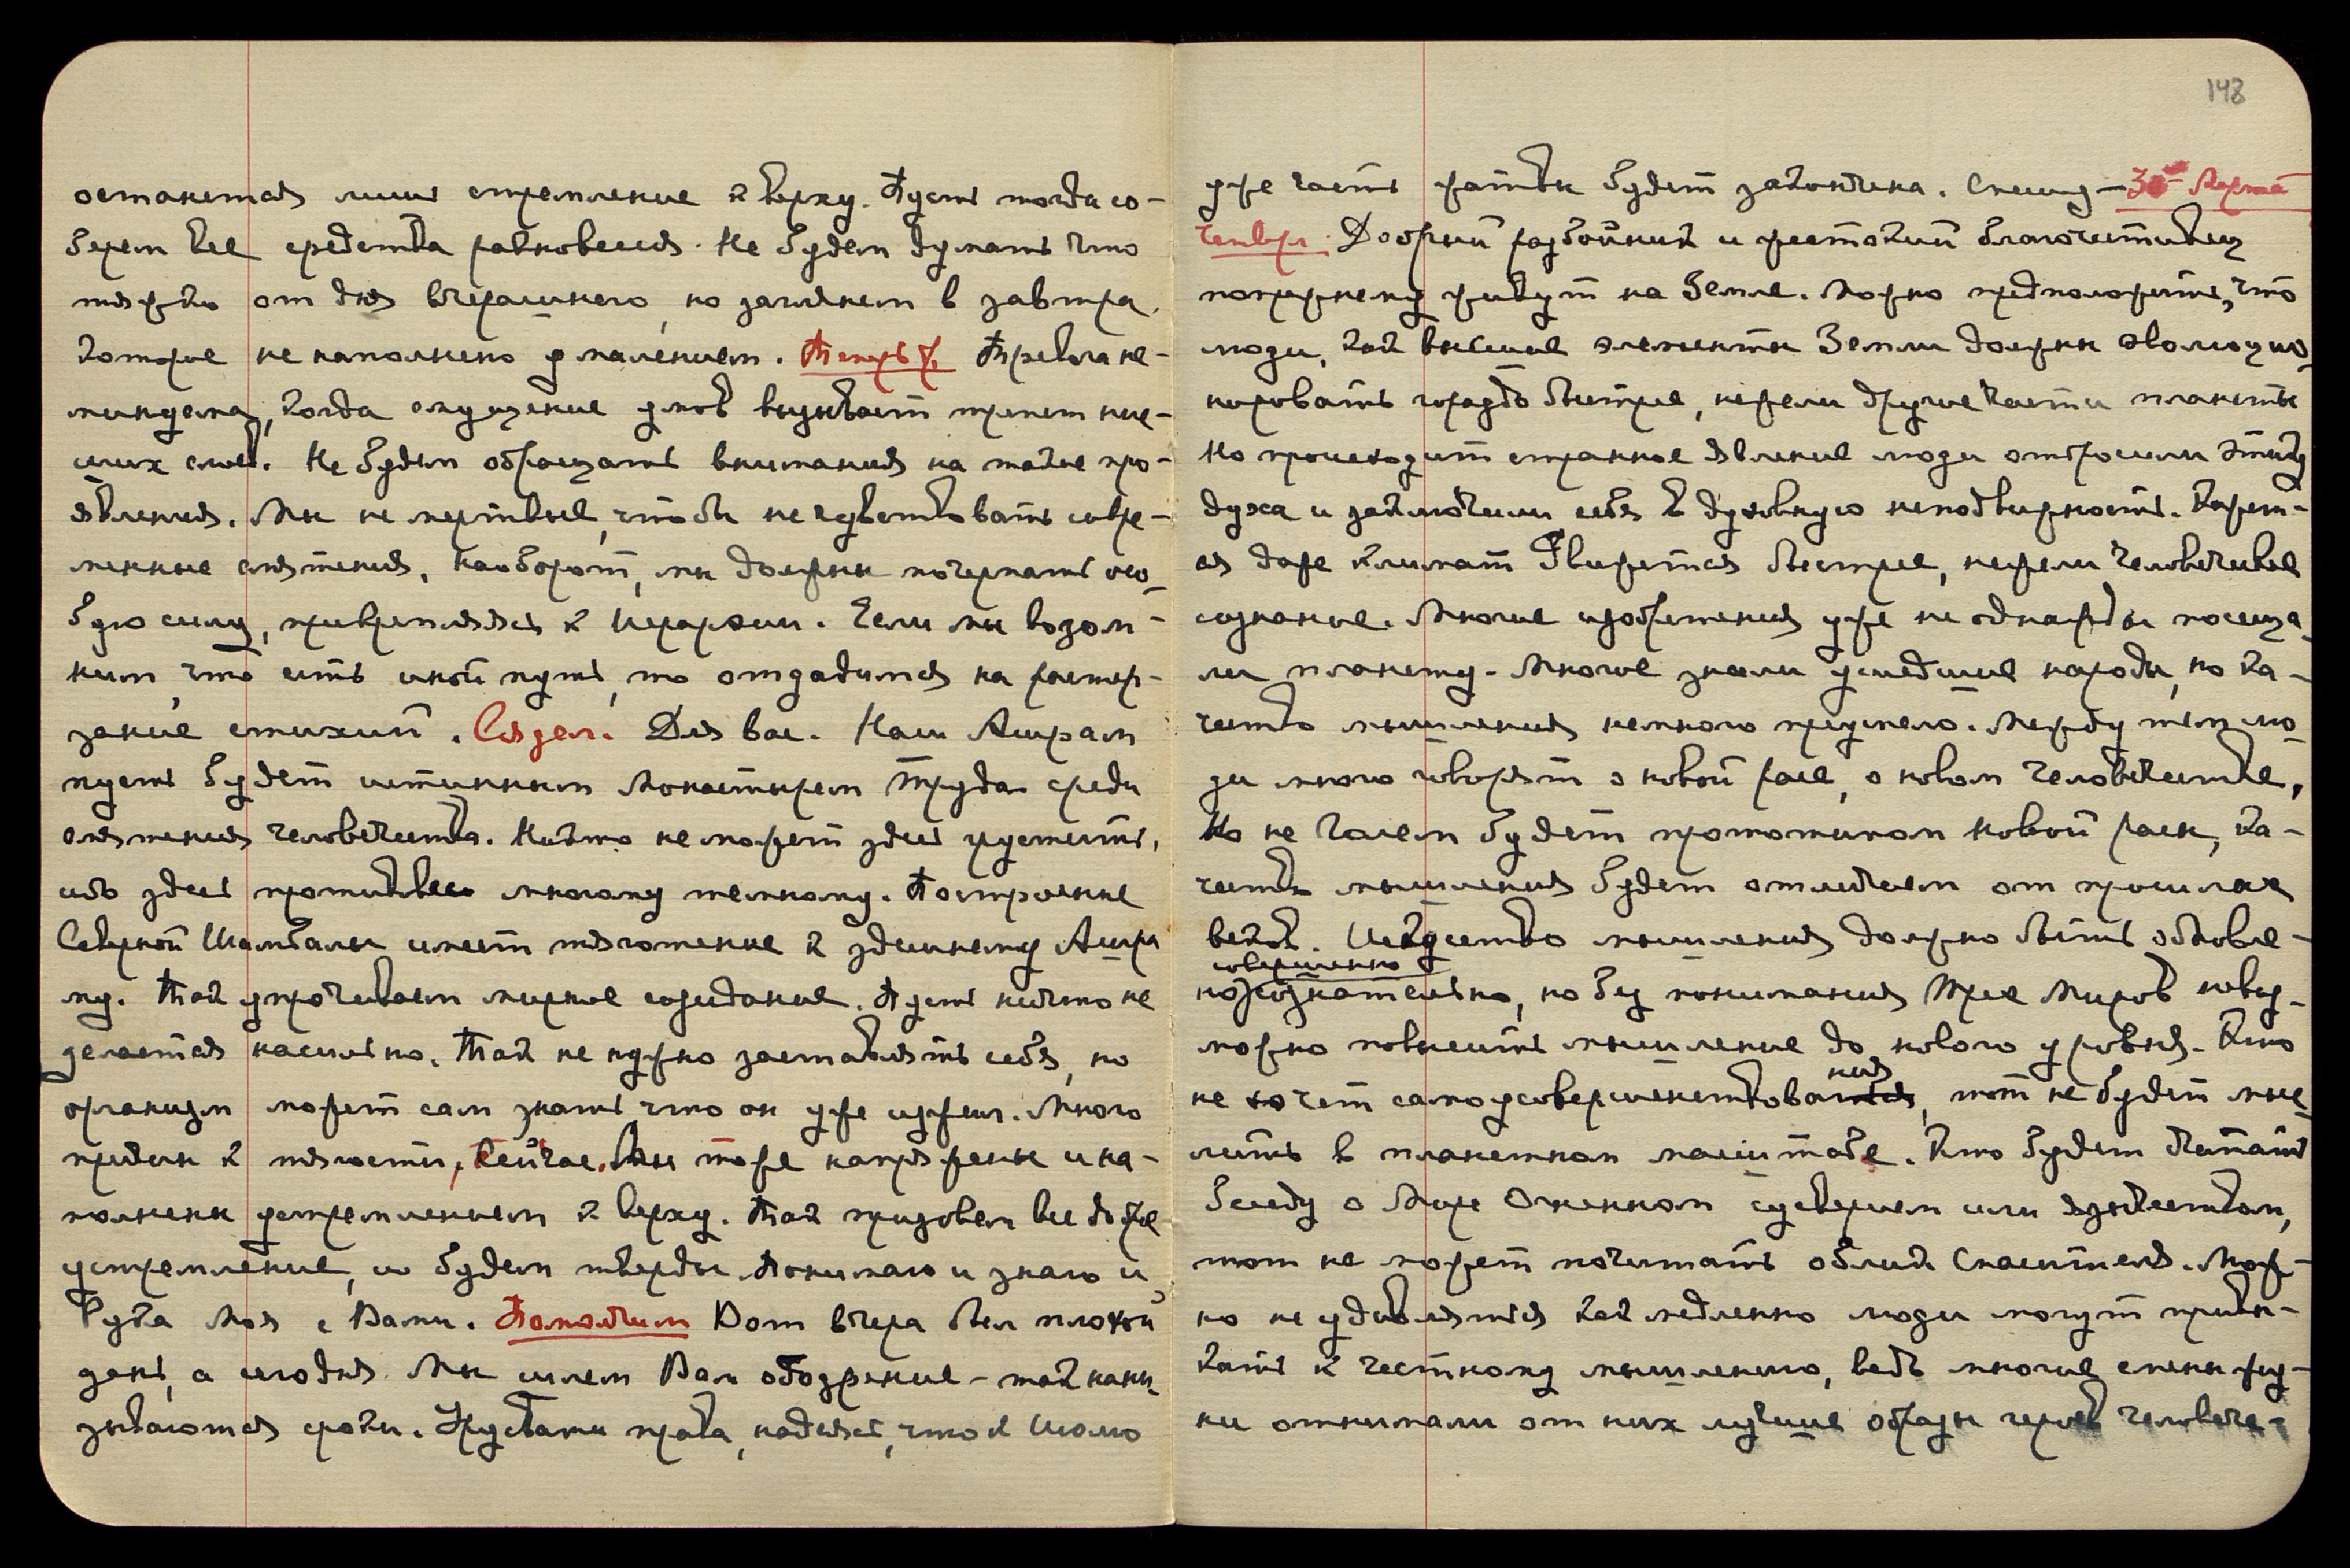 останется лишь стремление к верху. Пусть тогда со-
берем все средства равновесия. Не будем думать что
тяжко от дня вчерашнего, но заглянем в завтра,
которые не наполнено умалением. Теперь Тревога не-
минуема, когда смущение умов вызывает трепет низ-
ших слоев. Не будем обращать внимания на такие про-
явления. Мы не мертвые, чтобы не чувствовать совре-
менные смятения, наоборот, мы должны почерпать осо-
бую силу, прикрепляясь к Иерархии. Если мы возом-
ним, что есть иной путь, то отдадимся на растер-
зание стихий. Сядем. Для вас. Наш Ашрам
пусть будет истинным Монастырем Труда среди
смятения человечества. Никто не может здесь грустить,
ибо здесь противовес многому темному. Построение
Северной Шамбалы имеет тяготение к здешнему Ашра
му. Так упрочиваем мирное созидание. Пусть ничто не
делается насильно. Так не нужно заставлять себя, но
организм может сам знать что он уже нужен. Много
причин к тягости, сейчас. Мы тоже напряжены и на-
полнены устремлением к верху. Так призовем все то же
устремление, и будем тверды. Понимаю и знаю и
Рука Моя с Вами. Помолчим Вот вчера был плохой
день, а сегодня Мы шлем Вам ободрение – так нани-
зываются сроки. Урусвати права, надеясь, что к Июлю
148
уже часть жатвы будет закончена. Спешу – 30 Марта
Четверг. Добрый разбойник и жестокий благочестивец
попрежнему живут на Земле. Можно предположить, что
люди, как высшие элементы Земли должны эволюцио-
нировать гораздо быстрее, нежели другие части планеты
Но происходит странное явление люди отбросили этику
духа и заключили себя в духовную неподвижность. Кажет-
ся даже климат движется быстрее, нежели человеческое
сознание. Многие изобретения уже не однажды посеща-
ли планету. Многое знали ушедшие народы, но ка-
чество мышления немного преуспело. Между тем лю-
ди много говорят о новой расе, о новом человечестве,
Но не Голем будет прототипом новой расы, ка-
чество мышления будет отличаем от прошлых
веков. Искусство мышления должно быть обновле-
совершенно
но сознательно, но без понимания Трех Миров невоз-
можно повысить мышление до нового уровня. Кто
ния
не хочет самоусовершенствоваться, тот не будет мыс
лить в планетном масштабе. Кто будет считать
беседу о Мире Огненном суеверием или язычеством,
тот не может почитать облик Спасителя. Мож-
но не удивляться как медленно люди могут привы-
кать к честному мышлению, ведь многие смены жиз-
ни отнимали от них лучшие образы героев человече-